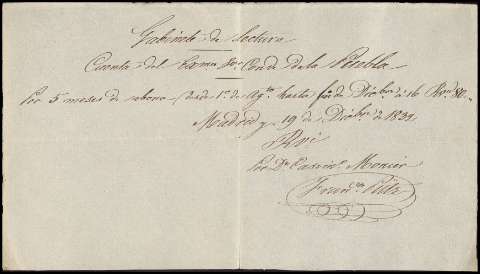 Gabinete de lectura
Cuenta del Exmo Sor Conde de la Puebla
Por 5 meses de abono desde 1º de Agto hasta fin de Dicbre á 16 Rs 80
Madrid y 19 de Dicbre de 1839
Por Dn Casimo Monier
Franco Pita